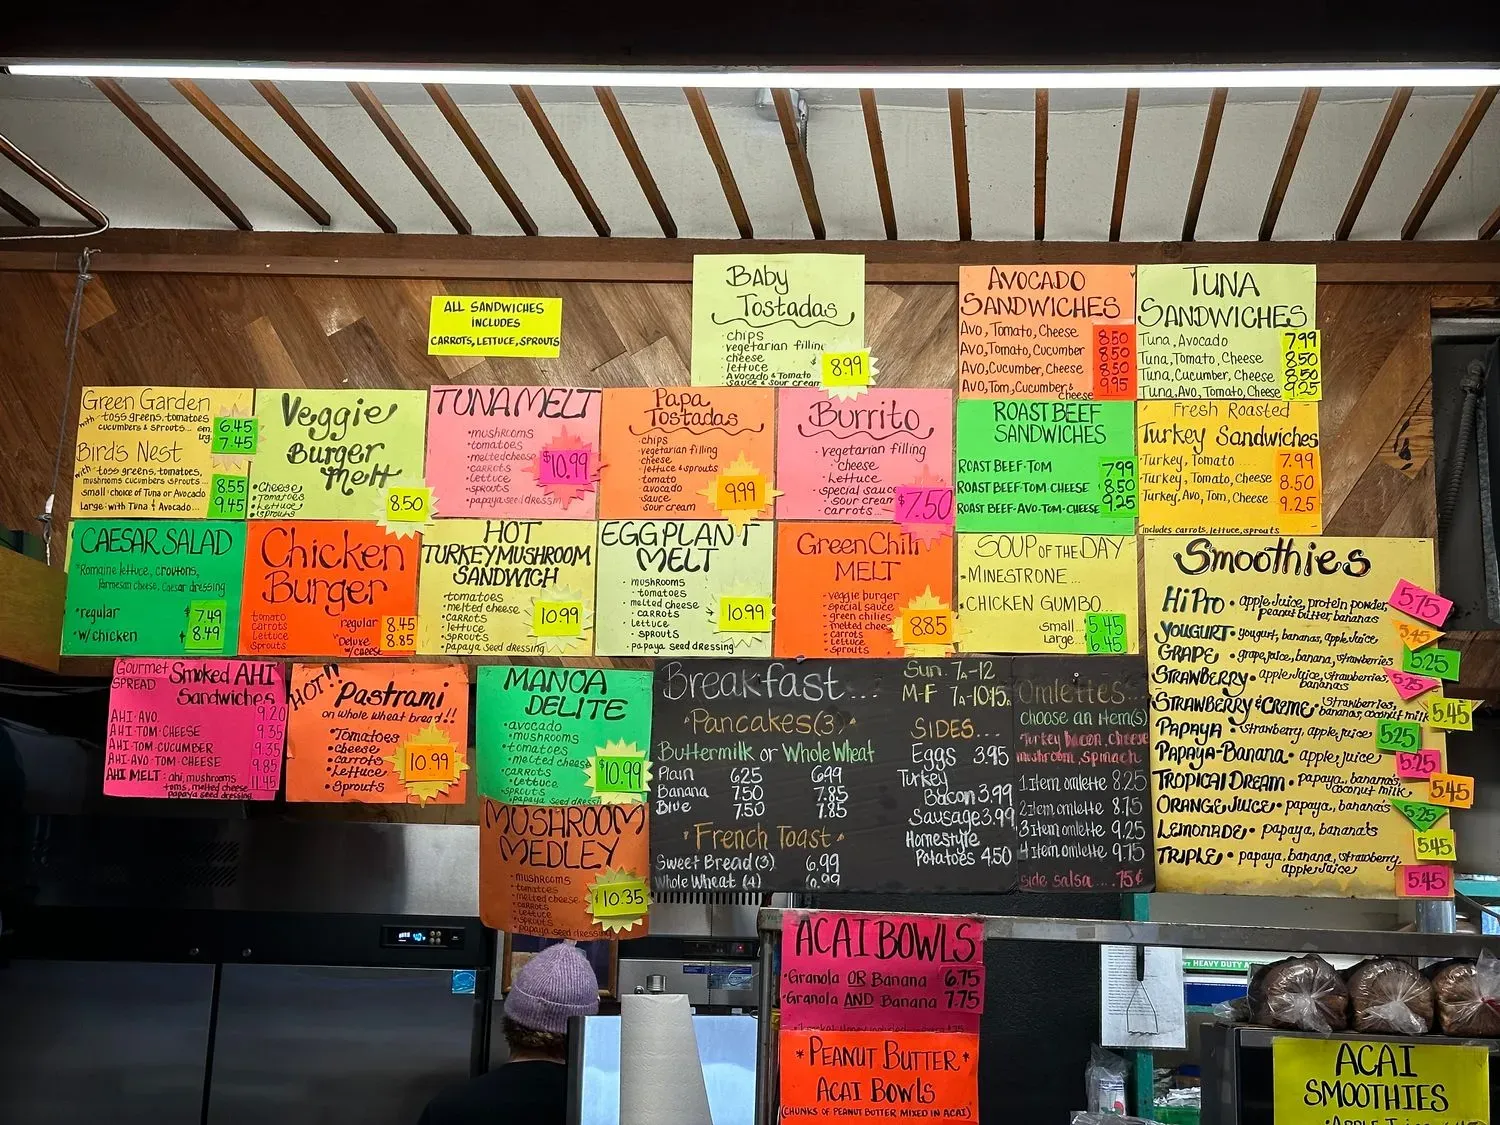 ALL SANDWICHES
INCLUDES
CARROTS, LETTUCE, SPROUTS
BABY
TOSTADAS
• chips
• vegetarian filling
cheese
• lettuce
Avocado & Tomato
sauce & sour cream
8.99
AVOCADO
SANDWICHES
Avo, Tomato, Cheese 8.50
Avo, Tomato, Cucumber 8.50
Avo, Cucumber, Cheese 8.50
Avo, Tom, Cucumber & cheese 9.95
TUNA
SANDWICHES
Tuna, Avocado 7.99
Tuna, Tomato, Cheese 8.50
Tuna, Cucumber, Cheese 8.50
Tuna, Avo, Tomato, Cheese 9.25
Green Garden
with toss greens, tomatoes
cucumbers & sprouts...
sm. 6.45
lrg. 7.45
Bird's Nest
with toss greens, tomatoes,
mushrooms cucumbers sprouts...
small · choice of Tuna or Avocado 8.55
large · with Tuna & Avocado... 9.45
Veggie
Burger
Melt
• Cheese
• Tomatoes
• Lettuce
• sprouts
8.50
TUNA MELT
• mushrooms
• tomatoes
• melted cheese
• carrots
• lettuce
• sprouts
• papaya seed dressing
$10.99
Papa
Tostadas
• chips
• vegetarian filling
cheese
• lettuce & sprouts
• tomato
• avocado
sauce
• sour cream
9.99
Burrito
• vegetarian filling
• cheese
• lettuce
• special sauce
• sour cream
carrots
$7.50
ROAST BEEF
SANDWICHES
ROAST BEEF · TOM 7.99
ROAST BEEF · TOM · CHEESE 8.50
ROAST BEEF · AVO · TOM · CHEESE 9.25
Fresh Roasted
Turkey Sandwiches
• Turkey, Tomato .... 7.99
• Turkey, Tomato, Cheese 8.50
Turkey, Avo, Tom, Cheese 9.25
includes carrots, lettuce, sprouts
CAESAR SALAD
• Romaine lettuce, croutons,
Parmesan cheese, Caesar dressing
• regular $7.49
• w/ chicken $8.49
Chicken
Burger
tomato
carrots
lettuce
sprouts
regular 8.45
Deluxe 8.85
w/ cheese
HOT
TURKEY MUSHROOM
SANDWICH
• tomatoes
• melted cheese
• carrots
• lettuce
• sprouts
• papaya seed dressing
10.99
EGGPLANT
MELT
• mushrooms
• tomatoes
• melted cheese
• carrots
• lettuce
• sprouts
• papaya seed dressing
10.99
Green Chili
MELT
• veggie burger
• special sauce
• green chilies
• melted cheese
• carrots
• lettuce
• sprouts
8.85
SOUP OF THE DAY
• MINESTRONE...
• CHICKEN GUMBO...
small 5.45
large 6.45
Smoothies
Hi Pro • apple juice, protein powder,
peanut butter, bananas 5.75
YOUGURT • yougurt, bananas, apple juice 5.45
GRAPE • grape juice, banana, strawberries 5.25
STRAWBERRY • apple juice, strawberries,
bananas 5.25
STRAWBERRY & CREME • strawberries,
bananas, coconut milk 5.45
PAPAYA • strawberry, apple juice 5.25
PAPAYA-BANANA • apple juice 5.25
TROPICAL DREAM • papaya, bananas,
coconut milk 5.45
ORANGE JUICE • papaya, banana's 5.25
LEMONADE • papaya, banana's 5.45
TRIPLE • papaya, banana, strawberry,
apple juice 5.45
Gourmet
SPREAD
Smoked AHI
Sandwiches
AHI · AVO 9.20
AHI · TOM · CHEESE 9.35
AHI · TOM · CUCUMBER 9.35
AHI · AVO · TOM · CHEESE 9.85
AHI MELT : ahi, mushrooms 11.45
toms, melted cheese
papaya seed dressing
HOT!!
Pastrami
on whole wheat bread!!
• Tomatoes
• cheese
• carrots
• Lettuce
• Sprouts
10.99
MANOA
DELITE
• avocado
• mushrooms
• tomatoes
• melted cheese
• carrots
• lettuce
• sprouts
• papaya seed dressing
$10.99
MUSHROOM
MEDLEY
• mushrooms
• tomatoes
• melted cheese
• carrots
• lettuce
• sprouts
• papaya seed dressing
$10.35
Breakfast...
Sun. 7A-12
M-F 7A-10:15A
Pancakes (3)
Buttermilk or Whole Wheat
Plain 6.25 6.99
Banana 7.50 7.85
Blue 7.50 7.85
French Toast
Sweet Bread (3) 6.99
Whole Wheat (4) 6.99
SIDES...
Eggs 3.95
Turkey
Bacon 3.99
Sausage 3.99
Homestyle
Potatoes 4.50
Omlettes...
Choose an item(s)
Turkey bacon, cheese
mushroom, spinach
1 Item omlette 8.25
2 Item omlette 8.75
3 Item omlette 9.25
4 Item omlette 9.75
side salsa .... 75¢
ACAI BOWLS
• Granola OR Banana 6.75
• Granola AND Banana 7.75
* PEANUT BUTTER *
ACAI BOWLS
(CHUNKS OF PEANUT BUTTER MIXED IN ACAI)
HEAVY DUTY
ACAI
SMOOTHIES